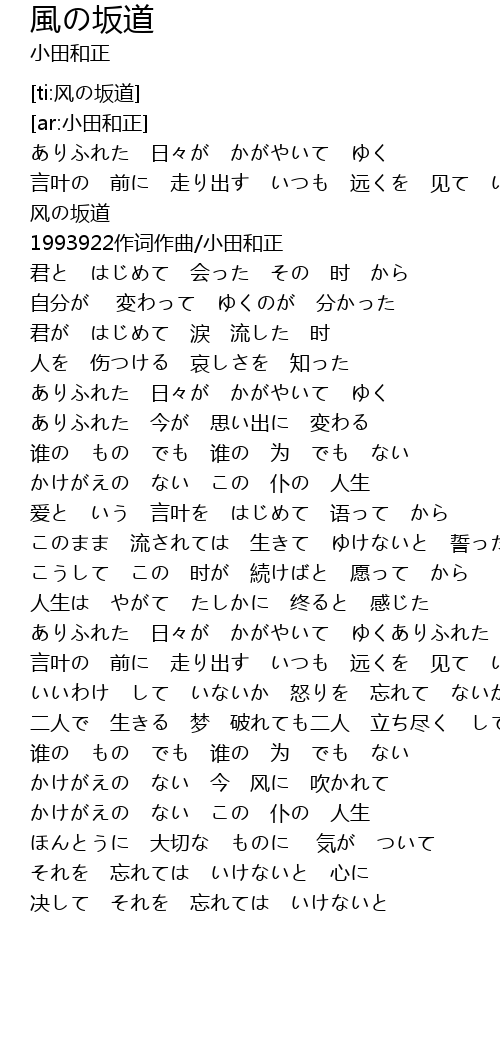 風の坂道
小田和正
[ti:风の坂道]
[ar:小田和正]
ありふれた　日々が　かがやいて　ゆく
言叶の　前に　走り出す　いつも　远くを　见て　い
风の坂道
1993922作词作曲/小田和正
君と　はじめて　会った　その　时　から
自分が　 変わって　 ゆくのが　分かった
君が　はじめて　涙　流した　时
人を　伤つける　哀しさを　知った
ありふれた　日々が　かがやいて　ゆく
ありふれた　今が　思い出に　変わる
谁の　もの　でも　谁の　为　でも　ない
かけがえの　ない　この　仆の　人生
爱と　いう　言叶を　はじめて　语って　から
このまま　流されては　生きて　ゆけないと　誓った
こうして　この　时が　続けばと　愿って　から
人生は　やがて　たしかに　终ると　感じた
ありふれた　日々が　かがやいて　ゆくありふれた
言叶の　前に　走り出す　いつも　远くを　见て　い
いいわけ　して　いないか　怒りを　忘れて　ないか
二人で　生きる　梦　破れても二人　立ち尽く　して
谁の　もの　でも　谁の　为　でも　ない
かけがえの　ない　今　风に　吹かれて
かけがえの　ない　この　仆の　人生
ほんとうに　大切な　ものに　 気が　ついて
それを　忘れては　いけないと　心に
决して　それを　忘れては　いけないと